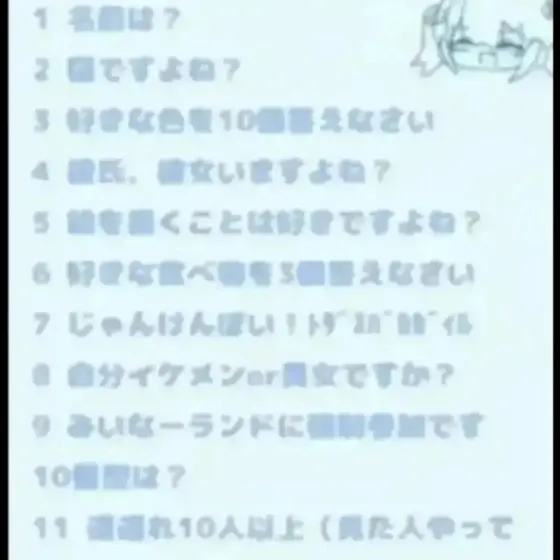 1 名前は？
2 ですよね？
3 好きな色を10個答えなさい
4 彼氏、彼女いますよね？
5 絵を描くことは好きですよね？
6 好きな食べ物を3個答えなさい
7 じゃんけんぽい！
8 自分イケメンor美女ですか？
9 みいなーランドに強制参加です
10 は？
11 れ10人以上（見た人やって